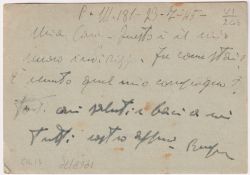 P. M. 181 - 23-7-45-
Mia Cara - questo è il mio
nuovo indirizzo. Tu come stai?
È venuto quel mio compagno?
Tanti cari saluti e baci a voi
tutti vostro aff.mo